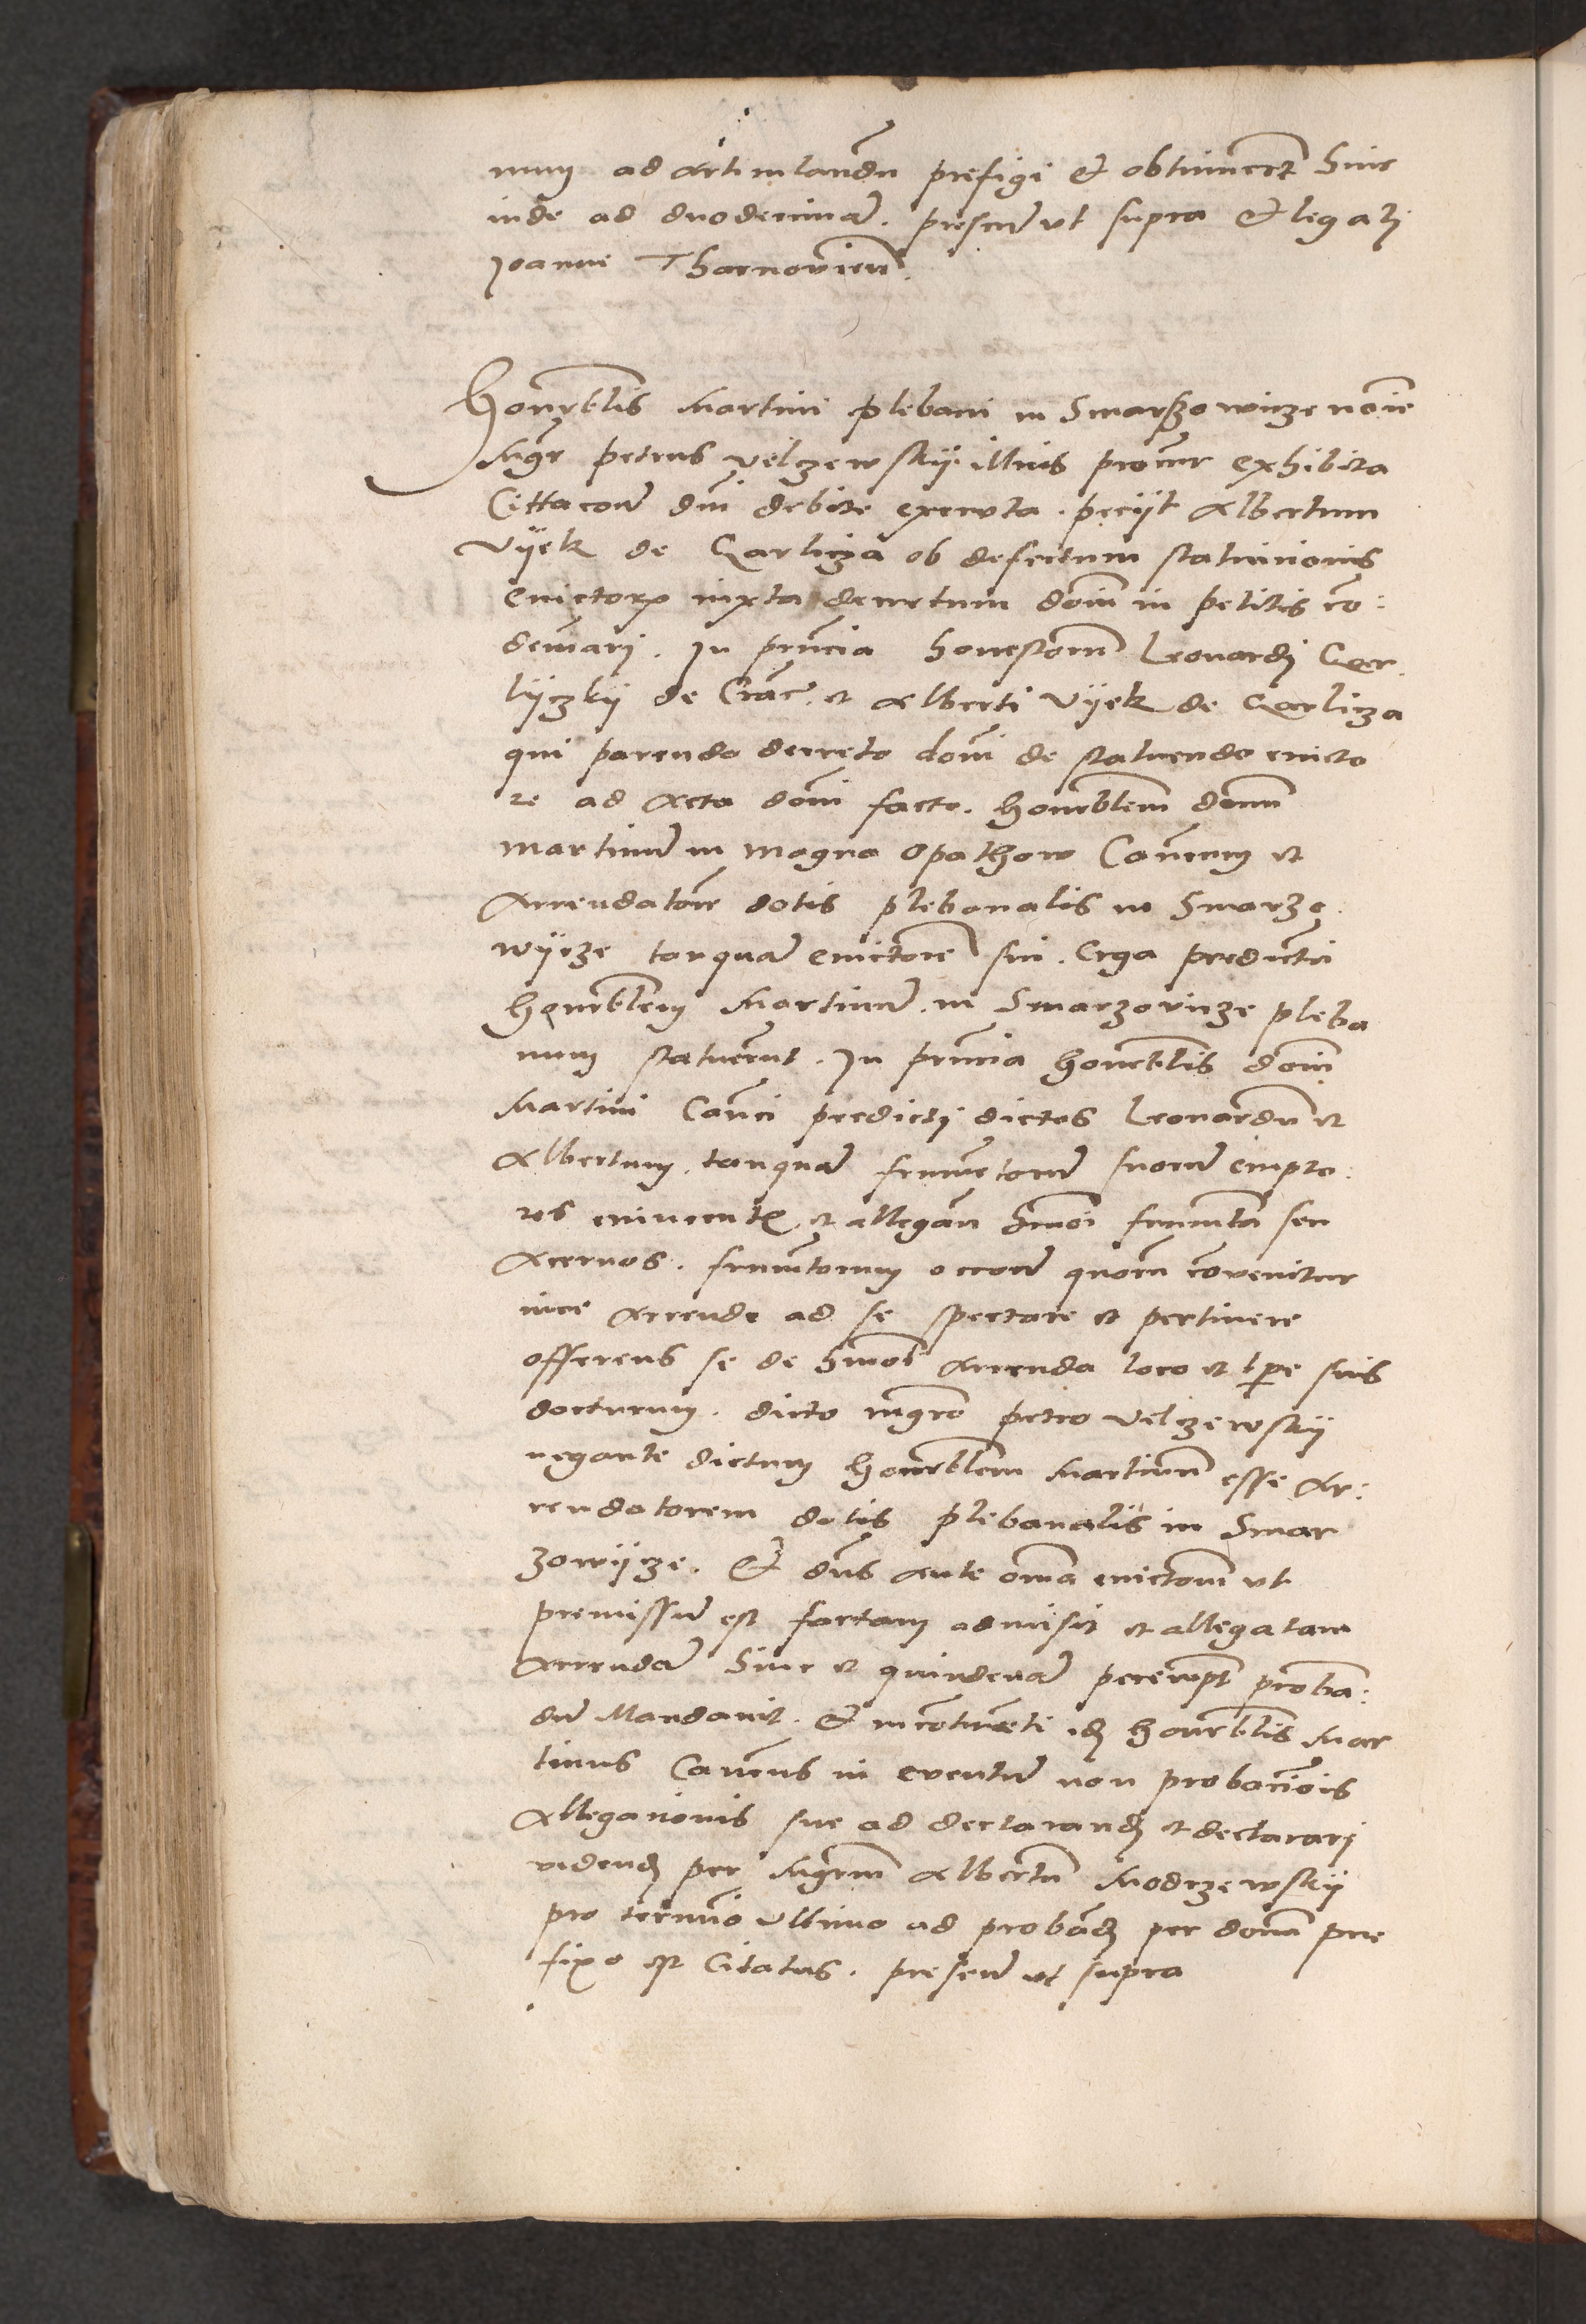 num ad articulandu prefigi et obtinuert hinc
inde ad duodecima. presen ut supra et legali
Joanne Tharnovien.
Honorblis Martini plebani in Smarssowicze noie
Mgr petrus velczewskij illius procur exhibita
Cittacone dni debite executa. peciit Albertum
Vijek de Gorlicza ob defectum statuicionis
evictorum iuxta decretum doni in petitis co:
demnari. In pnncia honestorum Leonardi Gor
lijczkij de Crac. et Alberti Vijek de Gorlicza
qui parendo decreto domi de statuendo evicto
re ad Acta doni facto. honorblem domnu
Martinum in Magna Opathow Canncum et
Arrendatore dotis plebanalis in Smarzo
wijcze tanqua evictore sui. Erga predictu
honorblem Martinum in Smarzovicze pleba
num statuerunt. In pnncia honorblis domi
Martini Canci predicti dictos Leonardu et
Albertum. tanqua frumetorum suorum empto:
res evincentis et allegan hmoi frumeta seu
Acervos. frumetorum occone quorum coveniuntur
iure Arrende ad se spectare et pertinere
offerens se de hmoi Arrenda loco et tpe suis
docturum. dicto mgro petro velczewskij
negante dictum honorblem Martinum esse Ar:
rendatorem dotis plebanalis in Smar
zowijcze. Et dns ante oma evictonem ut
premissum est factam admisit et allegatam
Arrenda hinc et quindena peremptorie proba:
dum Mandavit. Et incotineti idem honorblis Mar
tinus Canncus in eventum non probacionis
Allegacionis sue ad declarandum et declarari
videndum per Mgrm Albertum Modrzewskij
pro termino ultimo ad probandum per donum pre
fixo est Citatus. presen ut supra